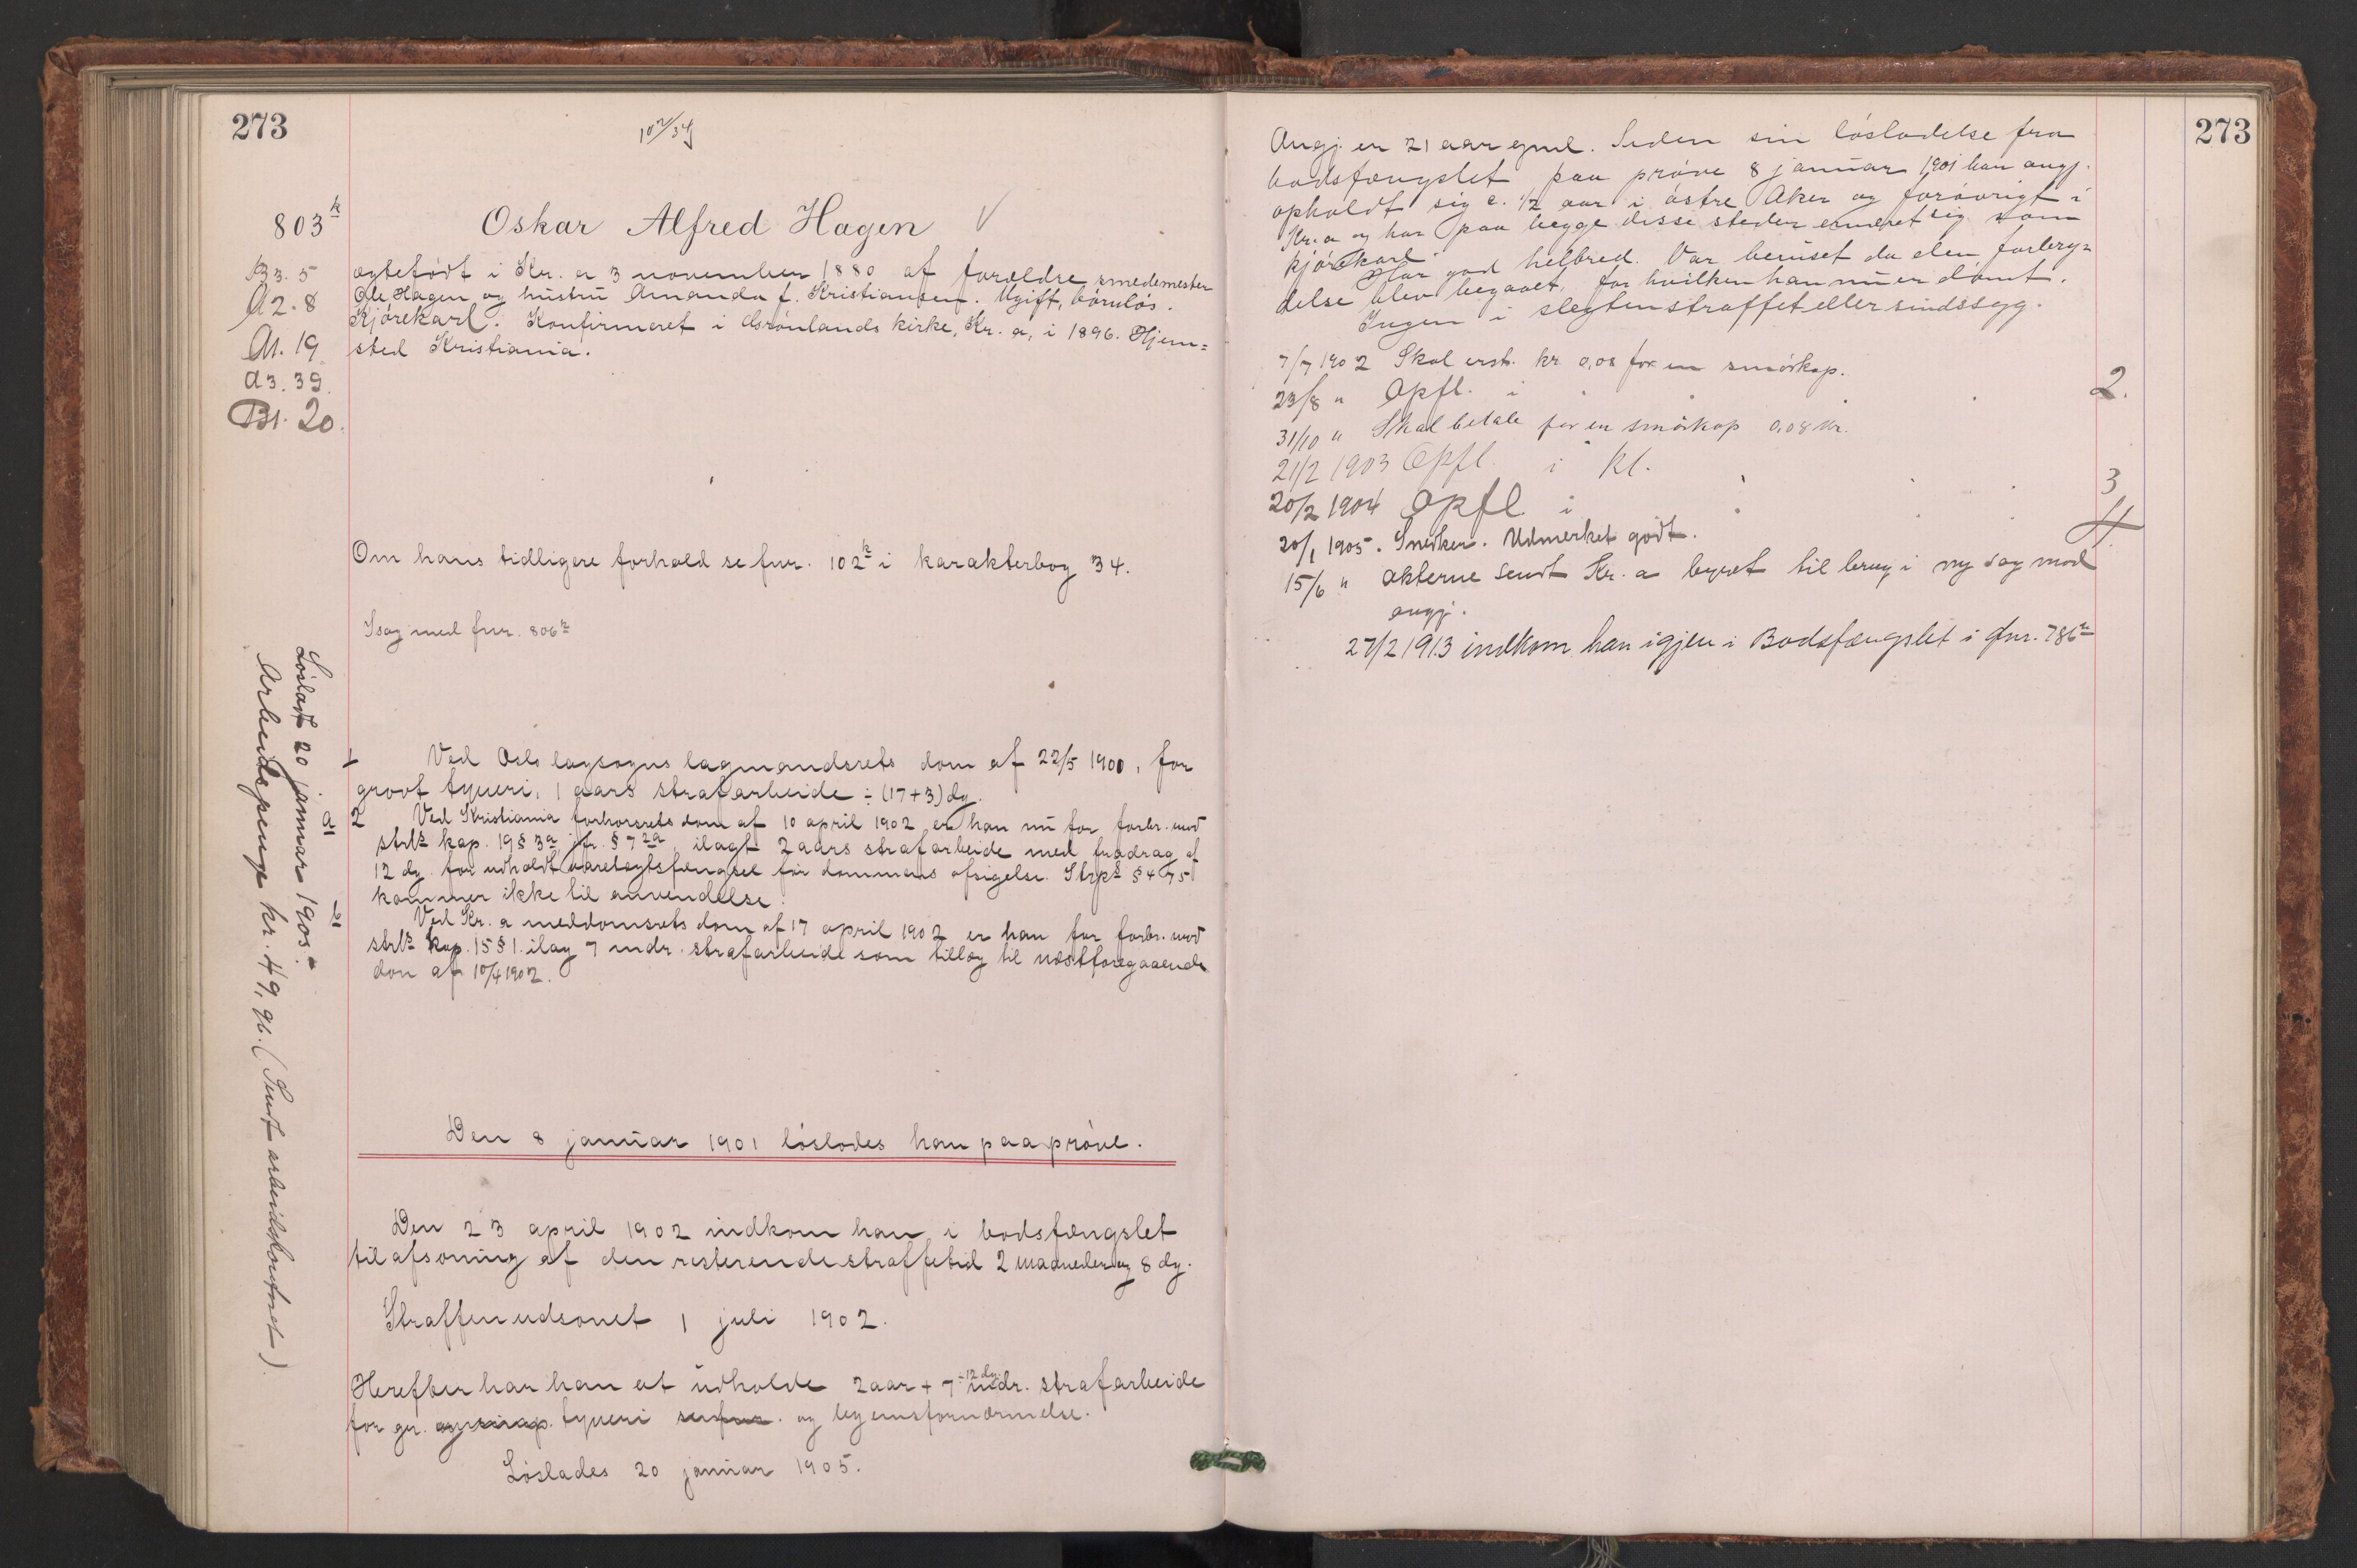 273
10²/34
803ᵏ
Oskar Alfred Hagen √
B3. 5
A2. 8
A1. 19
A3. 39
B1. 20.
egtefødt i Kr.a 3 november 1880 af forældre smedemester
Ole Hagen og hustru Amanda f. Kristiansen. Ugift, børnløs.
Kjørekarl. Konfirmeret i Grønlands kirke, Kr.a, i 1896. Hjem=
sted Kristiania.
Om hans tidligere forhold se fnr. 102ᵏ i karakterbog 34.
I sag med fnr. 806ᵏ
1 Ved Oslo lagsogns lagmandsrets dom af 22/5 1900, for
grovt tyveri, 1 aars strafarbeide ÷ (17+3) dg.
a 2 Ved Kristiania forhørsrets dom af 10 april 1902 er han nu for forbr. mod
strls kap. 19 § 3a jfr. § 7 2a ilagt 2 aars strafarbeide med fradrag af
12 dg. for udholdt varetægtsfængsel før dommens afsigelse. Strpl § 475
kommer ikke til anvendelse.
b Ved Kr.a meddomsrets dom af 17 april 1902 er han for forbr. mod
strls kap. 15 § 1. ilag 7 mdr. strafarbeide som tillæg til næstforegaaende
dom af 10/4 1902.
Den 8 januar 1901 løslodes han paa prøve.
Den 23 april 1902 indkom han i bodsfængslet
til afsoning af den resterende straffetid 2 maaneder og 8 dg.
Straffen udsonet 1 juli 1902.
Herefter har han at udholde 2 aar + 7 mdr. ÷ 12 dg. strafarbeide
for gr. tyveri og legemsfornærmelse.
Løslades 20 januar 1905.
Løsladt 20 januar 1905.
Arbeidspenge kr. 49,96. (Sendt arbeidskontoret)
273
Angj. er 21 aar gml. Siden sin løsladelse fra
bodsfængslet paa prøve 8 januar 1901 har angj.
opholdt sig c. 1/2 aar i østre Aker og forøvrigt i
Kr.a og har paa begge disse steder ernæret sig som
kjørekarl.
Har god helbred. Var beruset da den forbry=
delse blev begaaet, for hvilken han nu er dømt.
Ingen i slegten straffet eller sindssyg.
7/7 1902 Skal erst. kr 0,08 for en smørkop.
23/8 " Opfl. i 2.
31/10 " Skal betale for en smørkop 0,08 kr.
21/2 1903 Opfl. i kl. 3
20/2 1904 Opfl. i 4.
20/1 1905. Snedker. Udmerket godt.
15/6 " Akterne sendt Kr.a byret til brug i ny sag mod
angj.
27/2 1913 indkom han igjen i Bodsfængslet i fnr. 786ᵏ